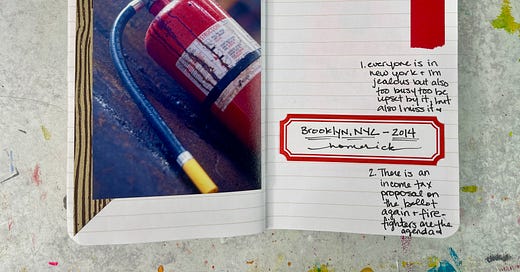 1. everyone is in
new york + I'm
jealous but also
too busy too be
upset by it, but
also I miss it
Brooklyn, NYC - 2014
2. There is an
income tax
proposal on
the ballot
again + fire-
fighters are the
agenda